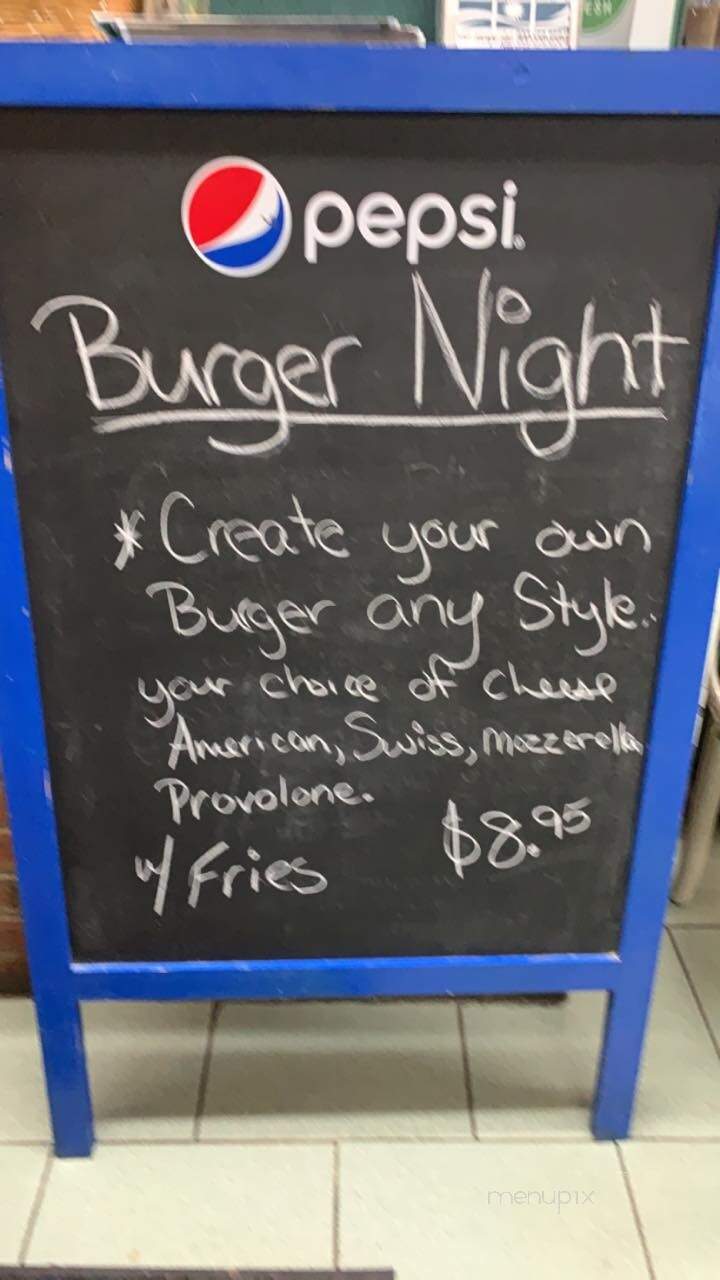 pepsi
Burger Night
*Create your own
Burger any Style.
your choice of cheese
American, Swiss, Mozzerella
Provolone.
w/ Fries $8.95
menupix